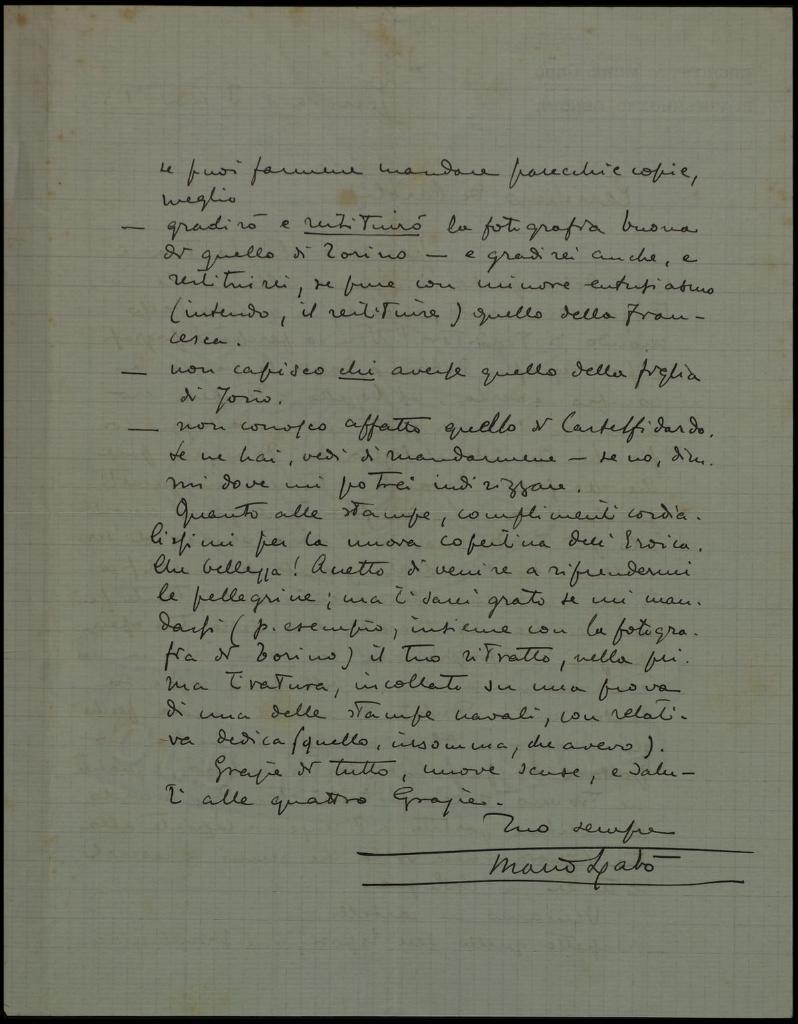 se puoi farmene mandare parecchie copie,
meglio
— gradirò e restituirò la fotografia buona
di quello di Torino — e gradirei anche, e
restituirei, se pure con minore entusiasmo
(intendo, il restituire) quello della Fran-
cesca.
— non capisco chi avesse quello della figlia
di Jorio.
— non conosco affatto quello di Castelfidardo.
Se ne hai, vedi di mandarmene — se no, dim-
mi dove mi potrei indirizzare.
Quanto alle stampe, complimenti cordia-
lissimi per la nuova copertina dell'Eroica.
Che bellezza! Aspetto di venire a riprendermi
le pellegrine; ma ti sarei grato se mi man-
dassi (p. esempio, insieme con la fotogra-
fia di Torino) il tuo ritratto, nella pri-
ma tiratura, incollato su una prova
di una delle stampe navali, con relati-
va dedica (quello, insomma, che avevo).
Grazie di tutto, nuove scuse, e salu-
ti alle quattro Grazie.
Tuo sempre
Mario Labò